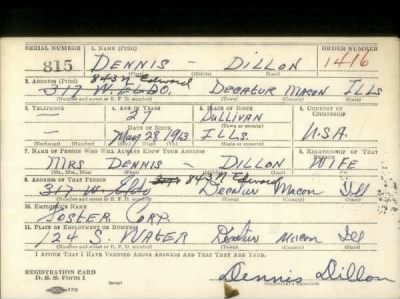 SERIAL NUMBER 1. NAME (Print) ORDER NUMBER
315 DENNIS - DILLON 1416
(First) (Middle) (Last)
843 N Edward
2. ADDRESS (Print)
317 W. ELDO. DECATUR MACON ILLS
(Number and street or R. F. D. number) (Town) (County) (State)
3. TELEPHONE 4. AGE IN YEARS 5. PLACE OF BIRTH 6. COUNTRY OF CITIZENSHIP
— 27 SULLIVAN
DATE OF BIRTH (Town or county)
— 28 1913 ILLS. U.S.A.
(Exchange) (Number) (Mo.) (Day) (Yr.) (State or country)
7. NAME OF PERSON WHO WILL ALWAYS KNOW YOUR ADDRESS 8. RELATIONSHIP OF THAT PERSON
MRS DENNIS - DILLON WIFE
(Mr., Mrs., Miss) (First) (Middle) (Last)
9. ADDRESS OF THAT PERSON 843 N Edward
317 W. Eldo Decatur Macon Ill
(Number and street or R. F. D. number) (Town) (County) (State)
10. EMPLOYER'S NAME
FOSTER CORP.
11. PLACE OF EMPLOYMENT OR BUSINESS
124 S. WATER Decatur Macon Ill
(Number and street or R. F. D. number) (Town) (County) (State)
I AFFIRM THAT I HAVE VERIFIED ABOVE ANSWERS AND THAT THEY ARE TRUE.
REGISTRATION CARD
D. S. S. Form 1
Dennis Dillon